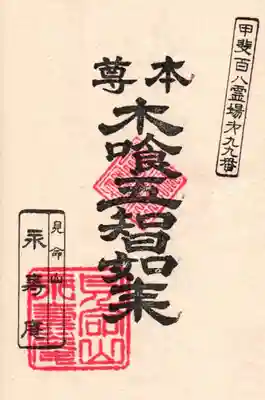 甲斐百八霊場第九九番
本尊
木喰五智如来
見命山
永寿庵
見命山
永壽庵